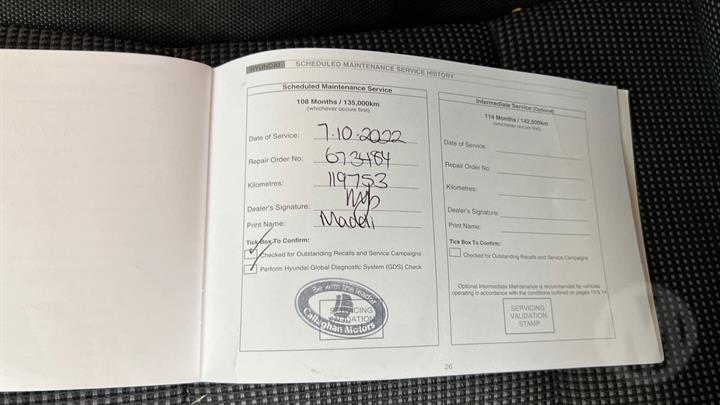 HYUNDAI SCHEDULED MAINTENANCE SERVICE HISTORY
Scheduled Maintenance Service
108 Months / 135,000km
(whichever occurs first)
Date of Service: 7-10-2022
Repair Order No: 673484
Kilometres: 119753
Dealer's Signature:
Print Name: Maddi
Tick Box To Confirm:
Checked for Outstanding Recalls and Service Campaigns
Perform Hyundai Global Diagnostic System (GDS) Check
Be with the leader
SERVICING
VALIDATION
Callaghan Motors
Intermediate Service (Optional)
114 Months / 142,500km
(whichever occurs first)
Date of Service:
Repair Order No:
Kilometres:
Dealer's Signature:
Print Name:
Tick Box To Confirm:
Checked for Outstanding Recalls and Service Campaigns
Optional Intermediate Maintenance is recommended for vehicles
operating in accordance with the conditions outlined on pages 13 &
SERVICING
VALIDATION
STAMP
26